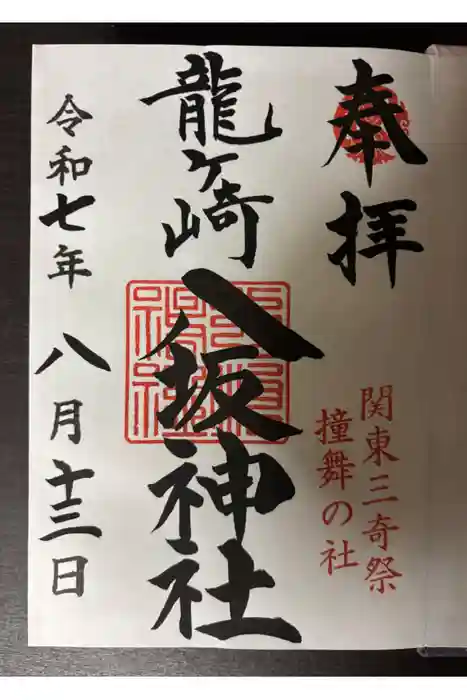 奉拝
関東三奇祭
撞舞の社
龍ヶ崎
八坂神社
令和七年
八月十三日